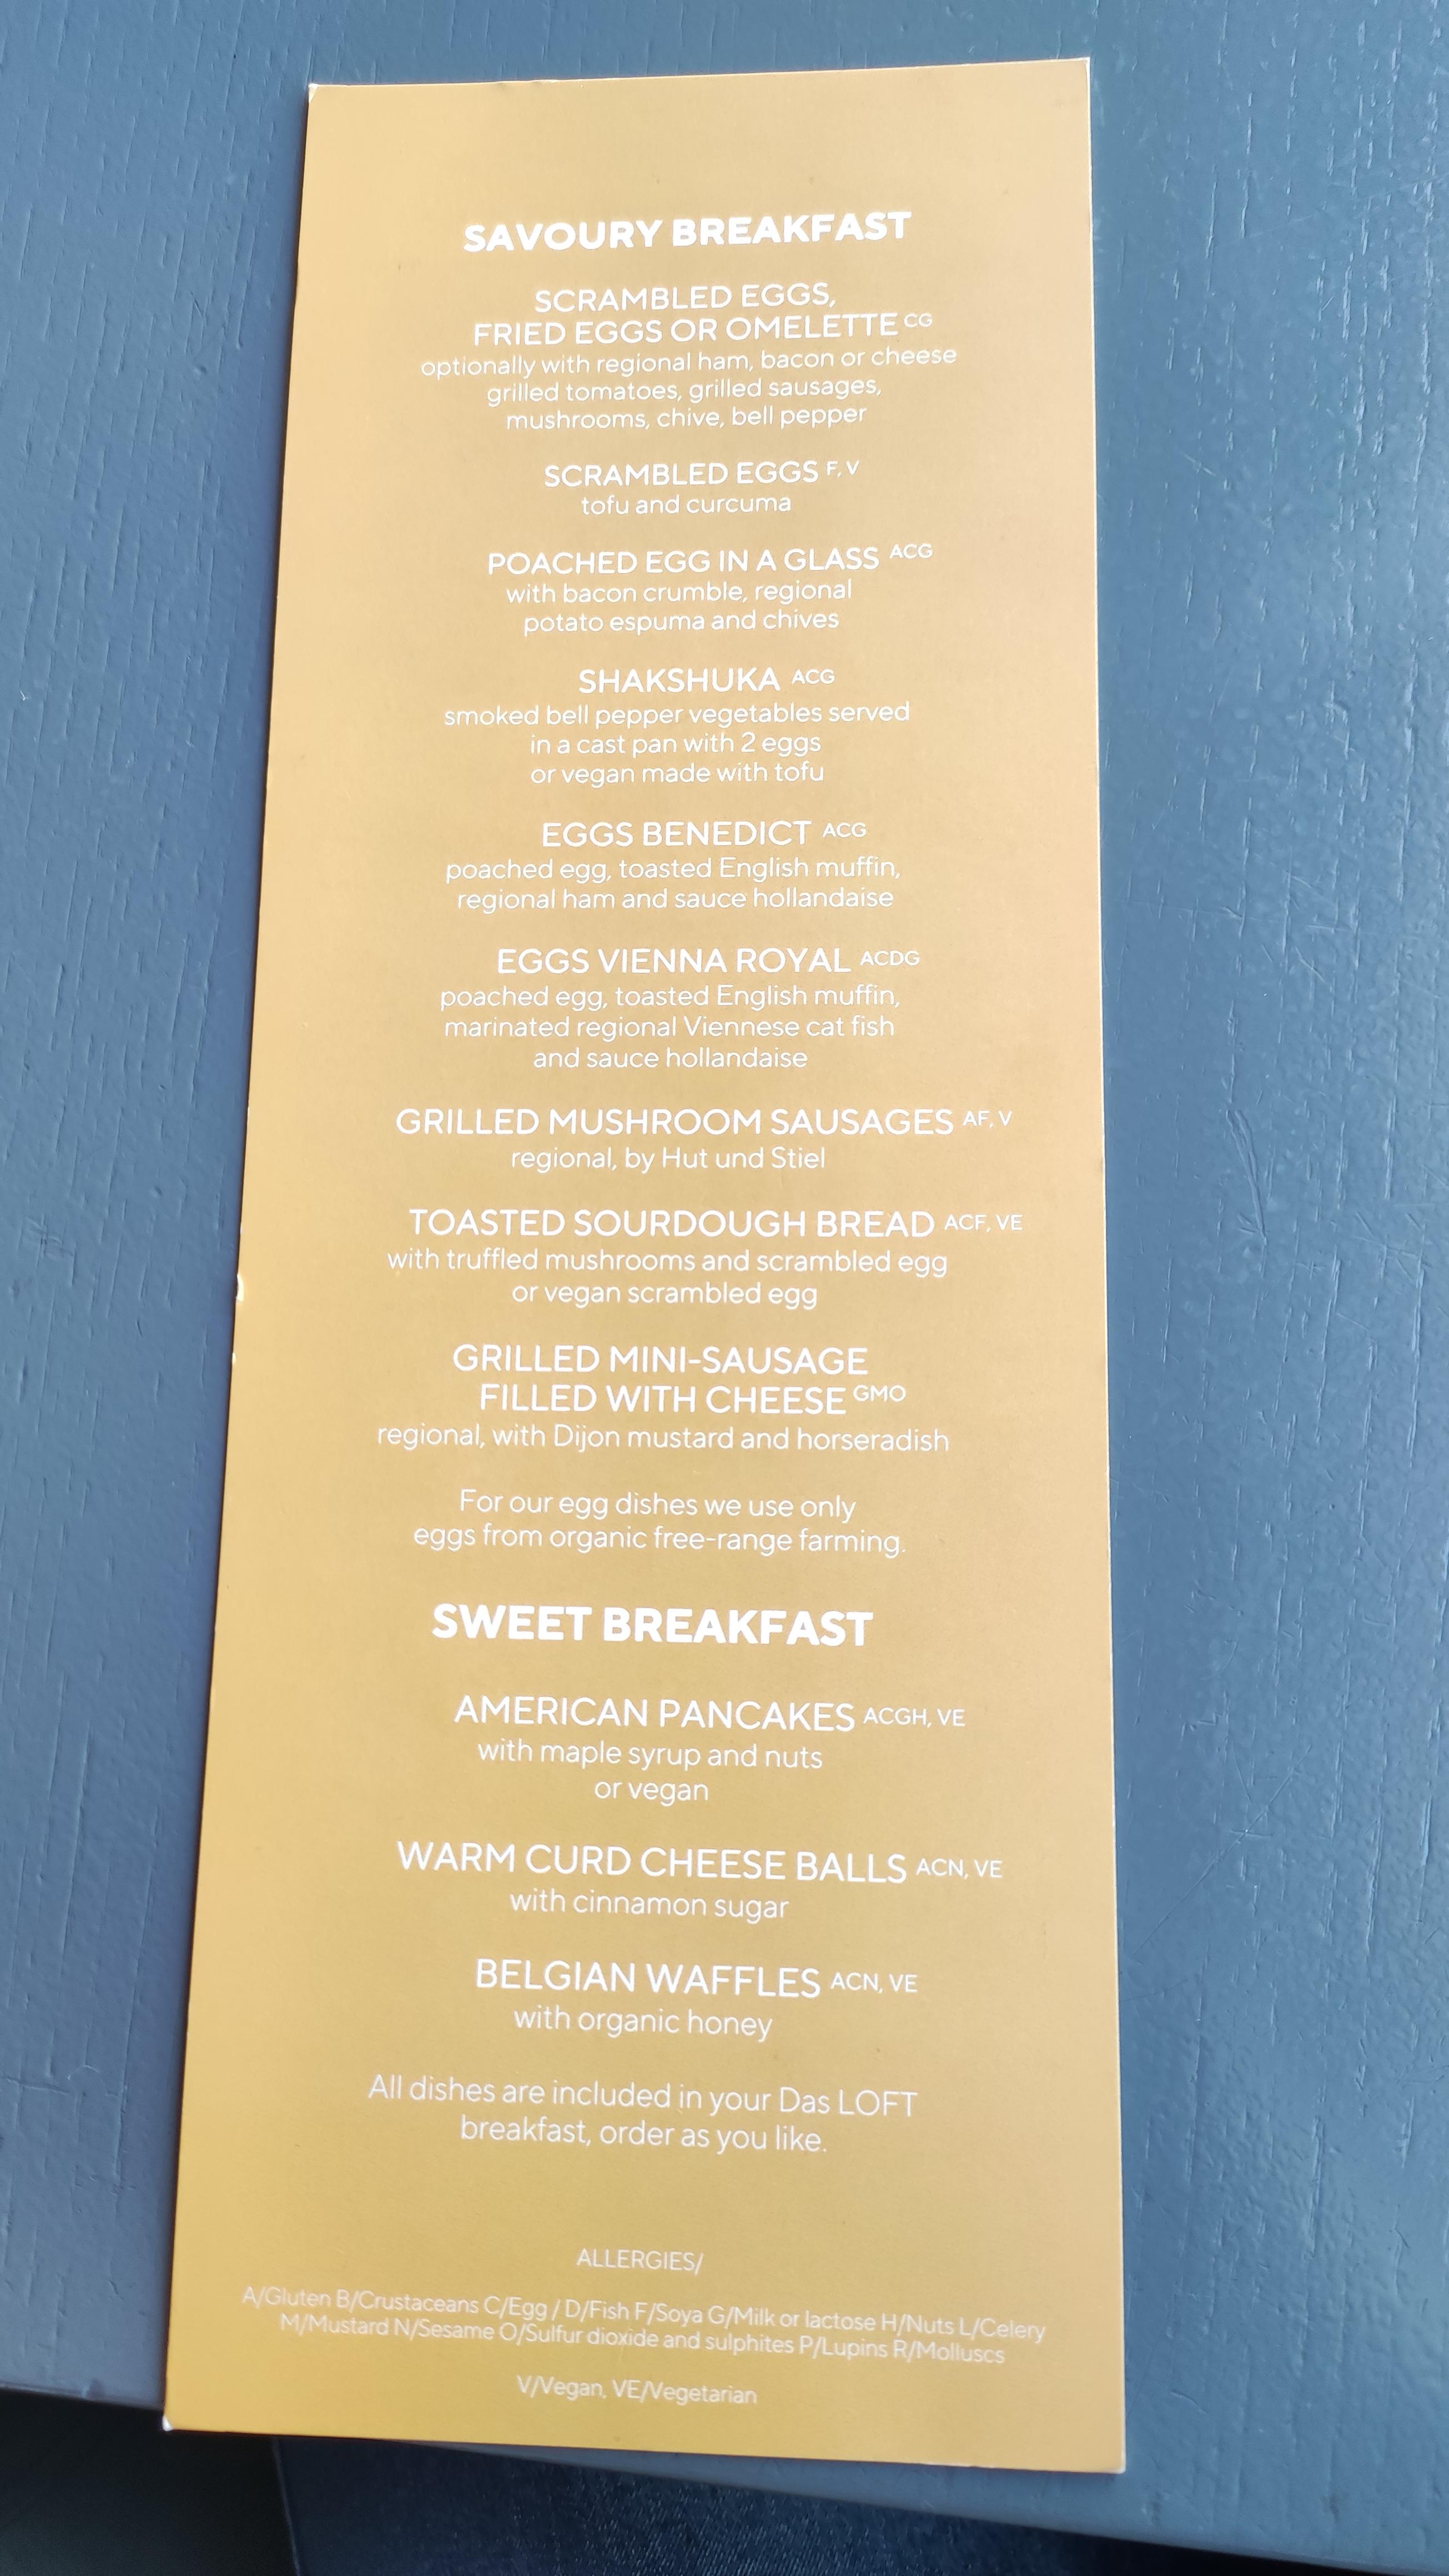 SAVOURY BREAKFAST
SCRAMBLED EGGS,
FRIED EGGS OR OMELETTE CG
optionally with regional ham, bacon or cheese
grilled tomatoes, grilled sausages,
mushrooms, chive, bell pepper
SCRAMBLED EGGS F, V
tofu and curcuma
POACHED EGG IN A GLASS ACG
with bacon crumble, regional
potato espuma and chives
SHAKSHUKA ACG
smoked bell pepper vegetables served
in a cast pan with 2 eggs
or vegan made with tofu
EGGS BENEDICT ACG
poached egg, toasted English muffin,
regional ham and sauce hollandaise
EGGS VIENNA ROYAL ACDG
poached egg, toasted English muffin,
marinated regional Viennese cat fish
and sauce hollandaise
GRILLED MUSHROOM SAUSAGES AF, V
regional, by Hut und Stiel
TOASTED SOURDOUGH BREAD ACF, VE
with truffled mushrooms and scrambled egg
or vegan scrambled egg
GRILLED MINI-SAUSAGE
FILLED WITH CHEESE GMO
regional, with Dijon mustard and horseradish
For our egg dishes we use only
eggs from organic free-range farming.
SWEET BREAKFAST
AMERICAN PANCAKES ACGH, VE
with maple syrup and nuts
or vegan
WARM CURD CHEESE BALLS ACN, VE
with cinnamon sugar
BELGIAN WAFFLES ACN, VE
with organic honey
All dishes are included in your Das LOFT
breakfast, order as you like.
ALLERGIES/
A/Gluten B/Crustaceans C/Egg / D/Fish F/Soya G/Milk or lactose H/Nuts L/Celery
M/Mustard N/Sesame O/Sulfur dioxide and sulphites P/Lupins R/Molluscs
V/Vegan, VE/Vegetarian